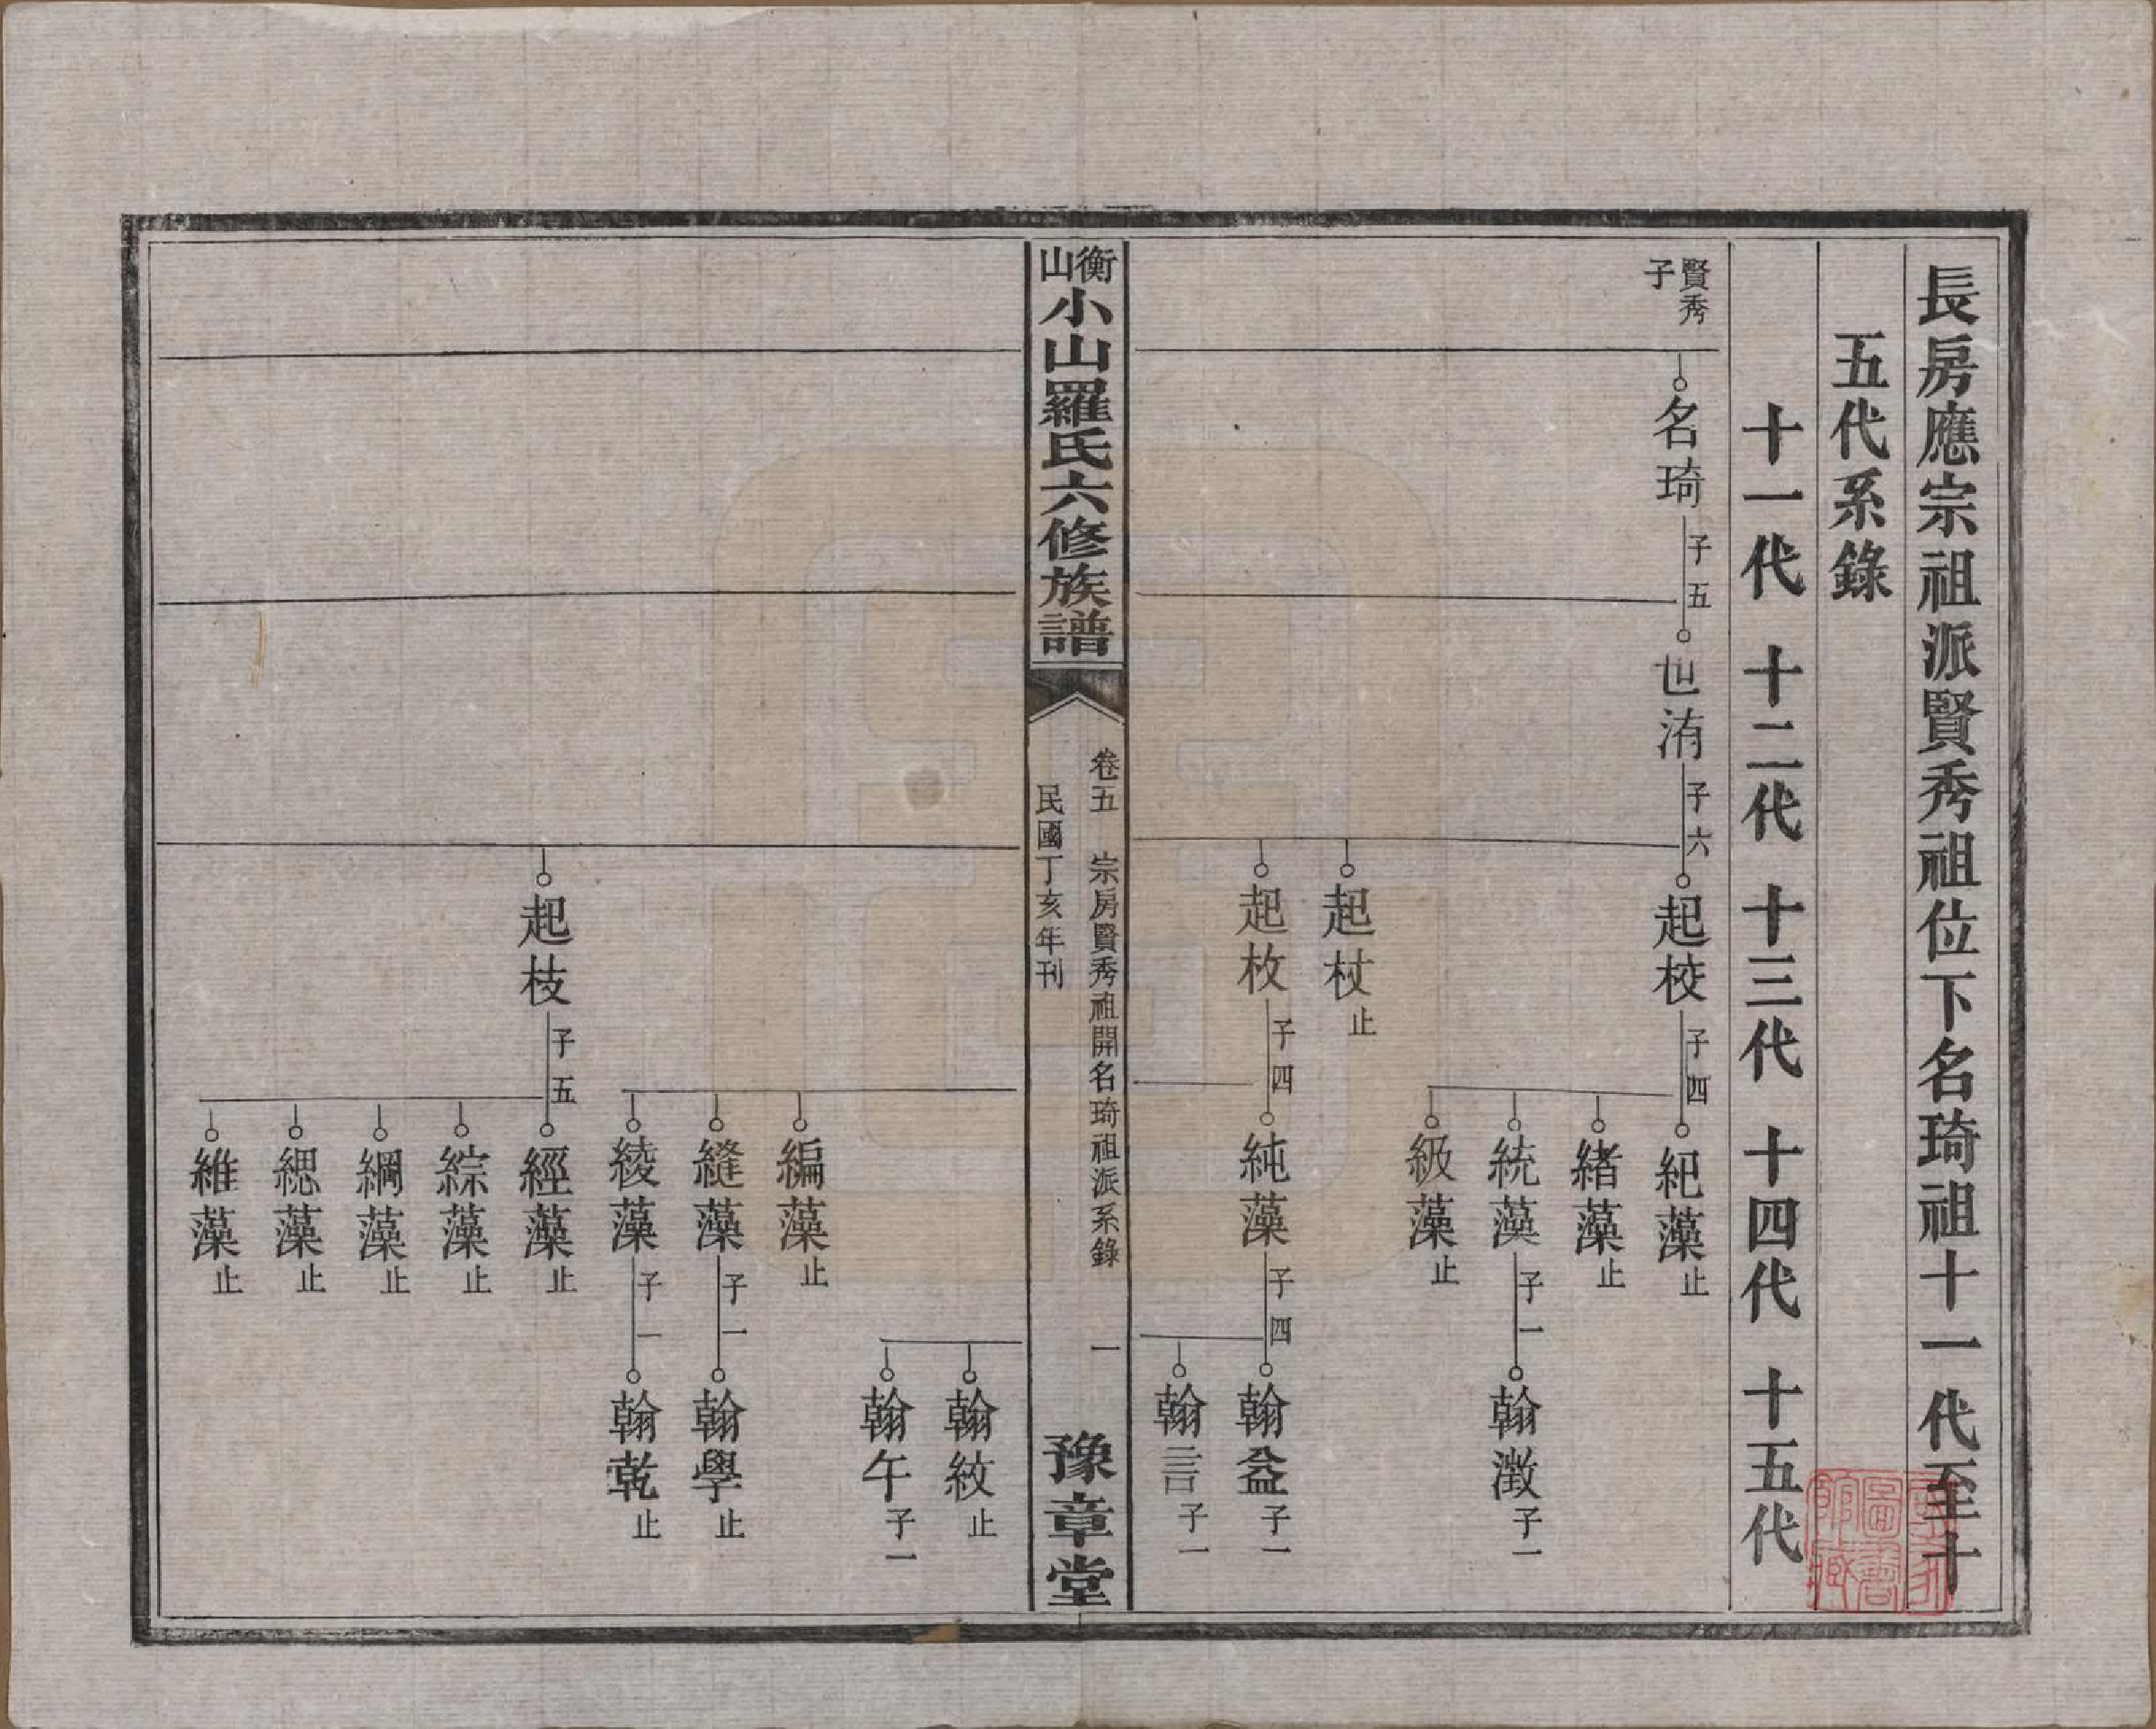 長房應宗祖派賢秀祖位下名琦祖十一代至十
五代系錄
十一代 十二代 十三代 十四代 十五代
賢秀
子
名琦 子五
世洧 子六
起校 子四
紀藻 止
緒藻 止
統藻 子一
翰澂 子一
級藻 止
起杖 止
起枚 子四
純藻 子四
翰益 子一
翰言 子一
衡山小山羅氏六修族譜
卷五 宗房賢秀祖開名琦祖派系錄 一
民國丁亥年刊
豫章堂
翰紋 止
翰午 子一
編藻 止
縫藻 子一
翰學 止
綾藻 子一
翰乾 止
起枝 子五
經藻 止
綜藻 止
綱藻 止
緦藻 止
維藻 止